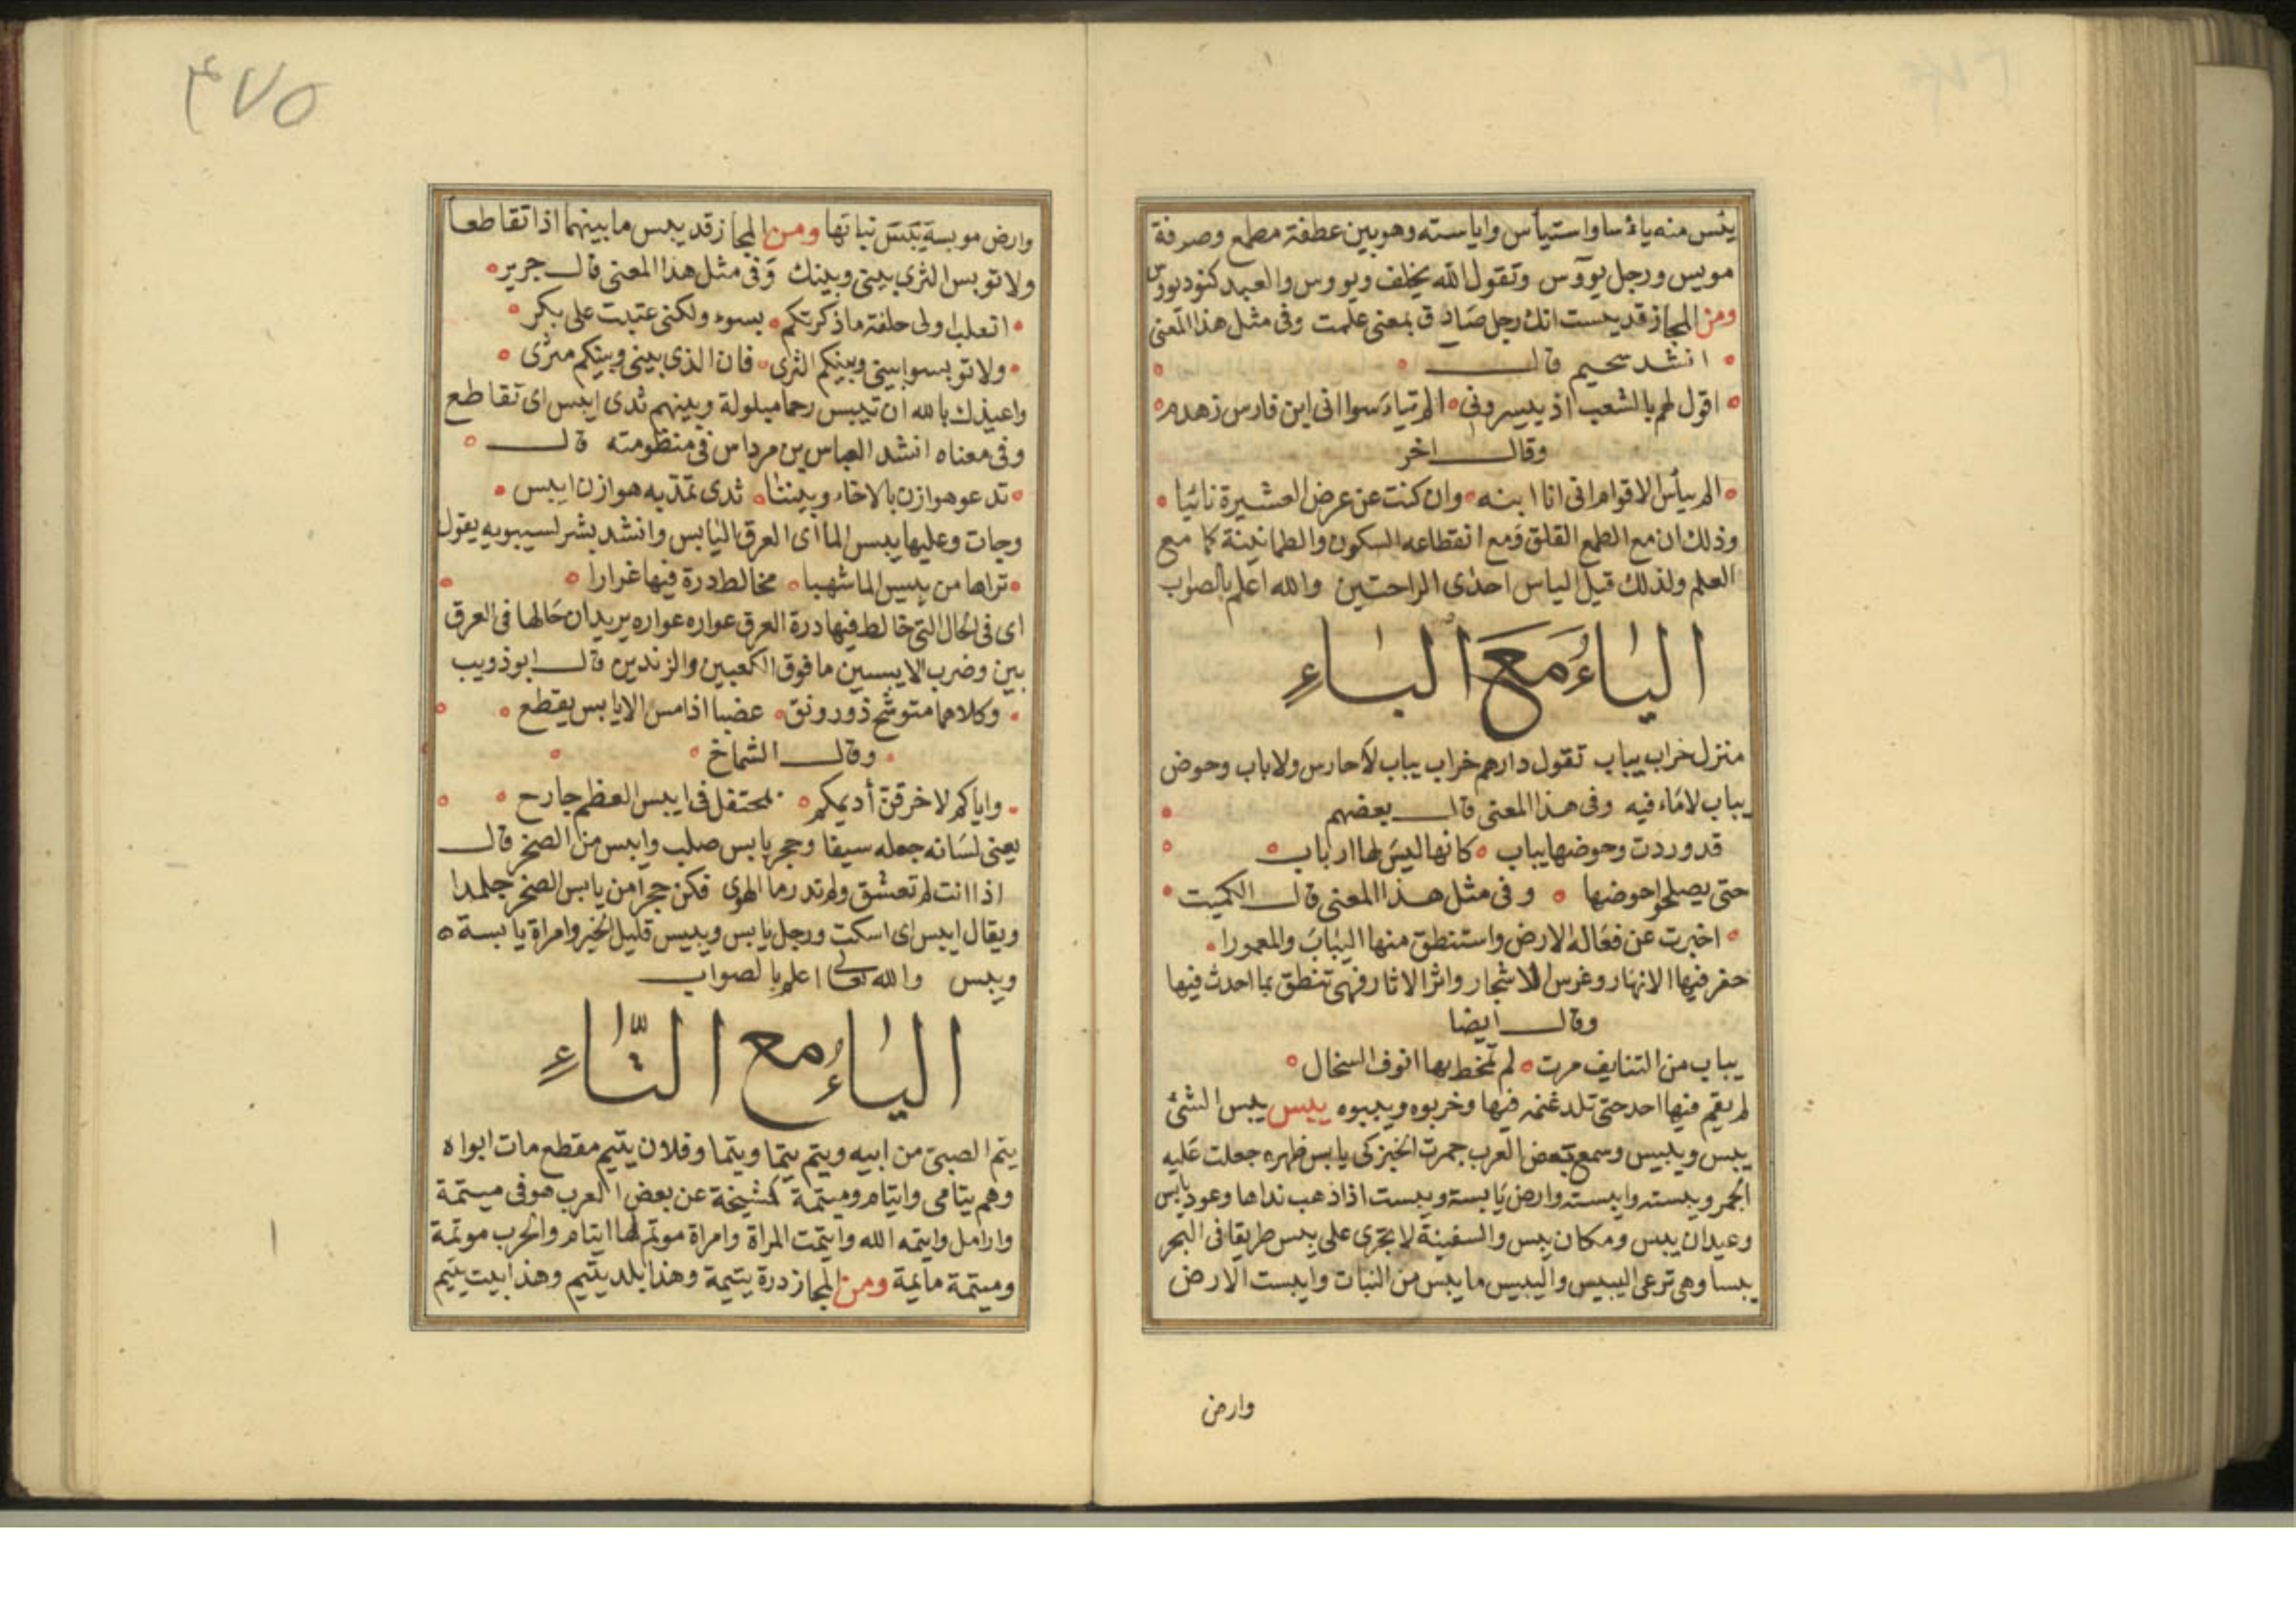 يئس منه يائسا واستيأس واياسته وهو بين عطفة مطمع وصرفة
مويس ورجل يووس وتقول الله يخلف ويووس والعبد كنود يووس
ومن المجاز قد يئست انك رجل صادق بمعنى علمت وفى مثل هذا المعنى
انشد سحيم قال
اقول لهم بالشعب اذ ييسرونى الم تياسوا انى ابن فارس زهدم
وقال اخر
الم ييأس الاقوام انى انا ابنه وان كنت عن عرض العشيرة نائيا
وذلك ان مع الطمع القلق ومع انقطاعه السكون والطمانينة كما مع
العلم ولذلك قيل الياس احدى الراحتين والله اعلم بالصواب
الياء مع الباء
منزل خراب يباب تقول دارهم خراب يباب لا حارس ولا باب وحوض
يباب لا ماء فيه وفى هذا المعنى قال بعضهم
قد وردت وحوضها يباب كانها ليس لها ارباب
حتى يصلحوا حوضها وفى مثل هذا المعنى قال الكميت
اخبرت عن فعاله الارض واستنطق منها اليباب والمعمورا
حفر فيها الانهار وغرس الاشجار واثر الاثار فهى تنطق بما احدث فيها
وقال ايضا
يباب من التنايف مرت لم تمخط بها انوف السخال
لم يقم فيها احد حتى تلد غنمه فيها وخربوه ويببوه يبس يبس الشئ
يبس وييبس وسمع بعض العرب جمرت الخبز كى يابس ظهره جعلت عليه
الجمر ويبسته وايبسته وارض يابسة ويبست اذا ذهب نداها وعود يابس
وعيدان يبس ومكان يبس والسفينة لا تجرى على يبس طريقا فى البحر
يبسا وهى ترعى اليبيس واليبيس ما يبس من النبات وايبست الارض
وارض
٤٧٥
وارض موبسة يبس نباتها ومن المجاز قد يبس ما بينهما اذا تقاطعا
ولا توبس الثرى بينى وبينك وفى مثل هذا المعنى قال جرير
اتعلب اولى حلفة ما ذكرتكم بسوء ولكنى عتبت على بكر
ولا توبسوا بينى وبينكم الثرى فان الذى بينى وبينكم مثرى
واعيذك بالله ان تيبس رحما مبلولة وبينهم ثدى ايبس اى تقاطع
وفى معناه انشد العباس بن مرداس فى منظومته قال
تدعو هوازن بالاخاء وبيننا ثدى تمد به هوازن ايبس
وجات وعليها يبس الما اى العرق اليابس وانشد بشر لسيبويه يقول
تراها من يبيس الما شهبا مخالط درة فيها غرارا
اى فى الحال التى خالط فيها درة العرق عواره عواره يريد ان حالها فى العرق
بين وضرب الايبسين ما فوق الكعبين والزندين قال ابو ذويب
وكلاهما متوشح ذو رونق عضبا اذا مس الايابس يقطع
وقال الشماخ
واياكم لا خرقن أديمكم بمحتفل فى ايبس العظم جارح
يعنى لسانه جعله سيفا وحجر يابس صلب وايبس من الصخر قال
اذا انت لم تعشق ولم تدر ما الهوى فكن حجرا من يابس الصخر جلمدا
ويقال ايبس اى اسكت ورجل يابس ويبيس قليل الخير وامراة يابسة
ويبس والله تعالى اعلم بالصواب
الياء مع التاء
يتم الصبى من ابيه ويتم يتما ويتما وفلان يتيم مقطع مات ابواه
وهم يتامى وايتام وميتمة كمشيخة عن بعض العرب هو فى ميتمة
وارامل وايتمه الله وايتمت المراة وامراة موتم لها ايتام والحرب موتمة
وميتمة مايمة ومن المجاز درة يتيمة وهذا بلد يتيم وهذا بيت يتيم